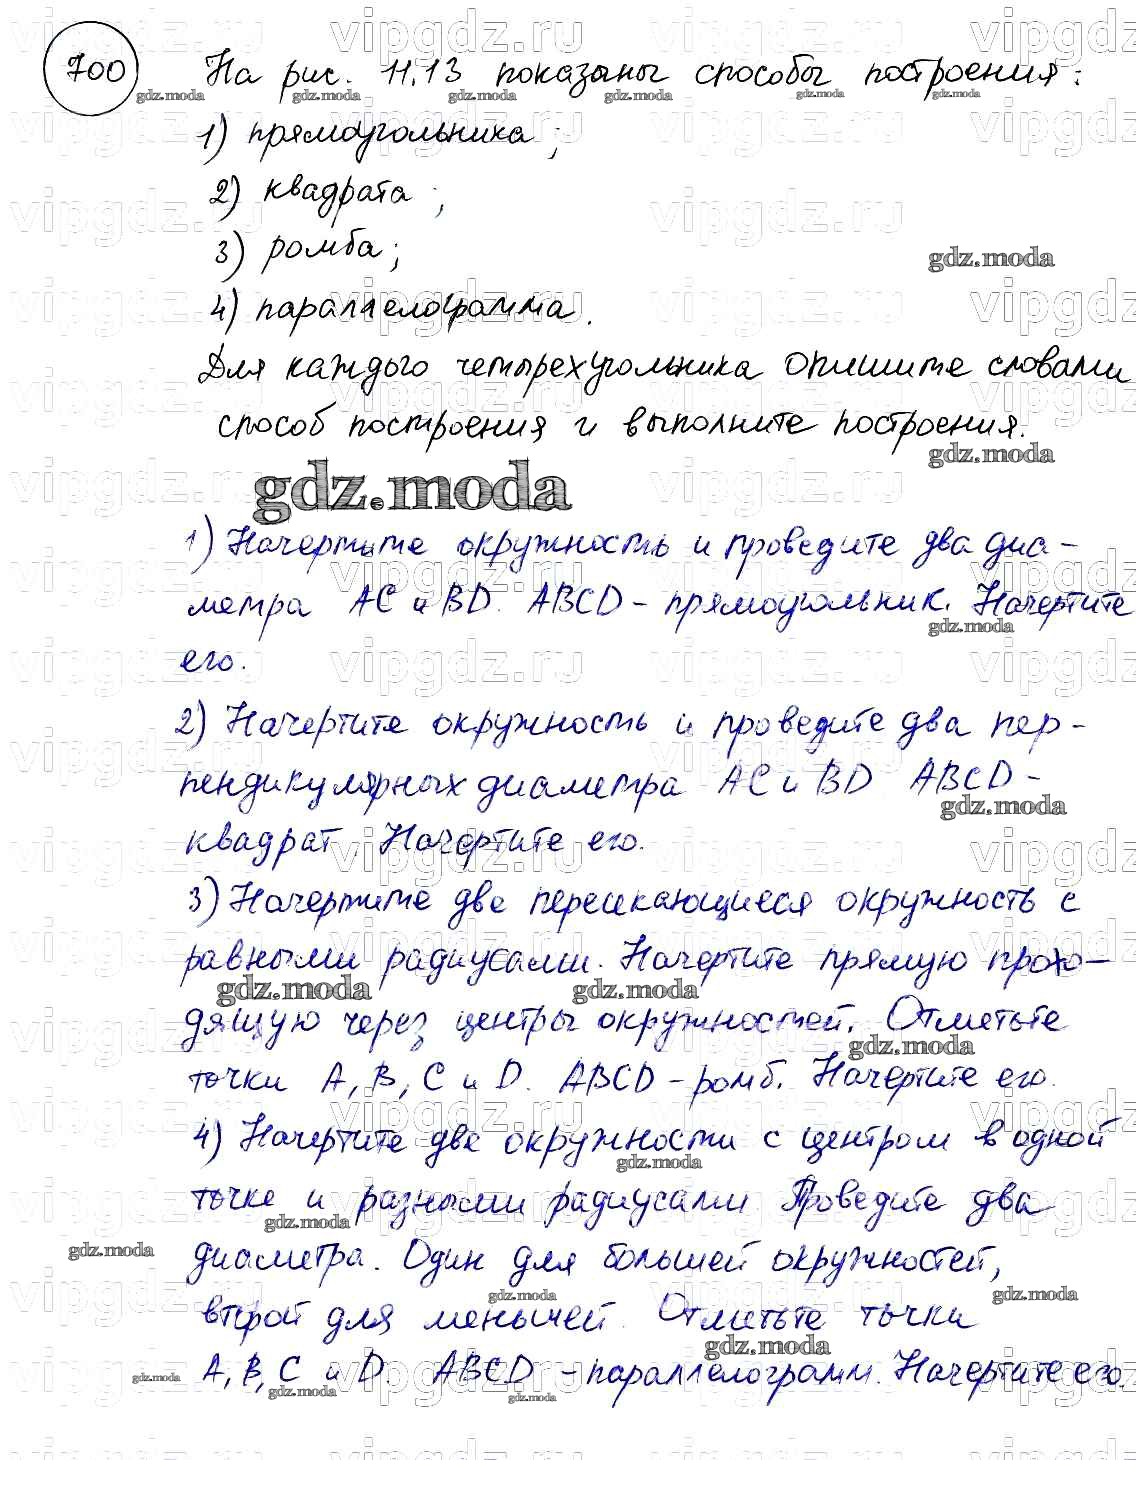 700 На рис. 11.13 показаны способы построения:
1) прямоугольника;
2) квадрата;
3) ромба;
4) параллелограмма.
Для каждого четырехугольника опишите словами
способ построения и выполните построения.
gdz.moda
1) Начертите окружность и проведите два диа-
метра AC и BD. ABCD - прямоугольник. Начертите
его.
2) Начертите окружность и проведите два пер-
пендикулярных диаметра AC и BD ABCD -
квадрат. Начертите его.
3) Начертите две пересекающиеся окружность с
равными радиусами. Начертите прямую прохо-
дящую через центры окружностей. Отметьте
точки A, B, C и D. ABCD - ромб. Начертите его.
4) Начертите две окружности с центром в одной
точке и разными радиусами. Проведите два
диаметра. Один для большей окружностей,
второй для меньшей. Отметьте точки
A, B, C и D. ABCD - параллелограмм. Начертите его.